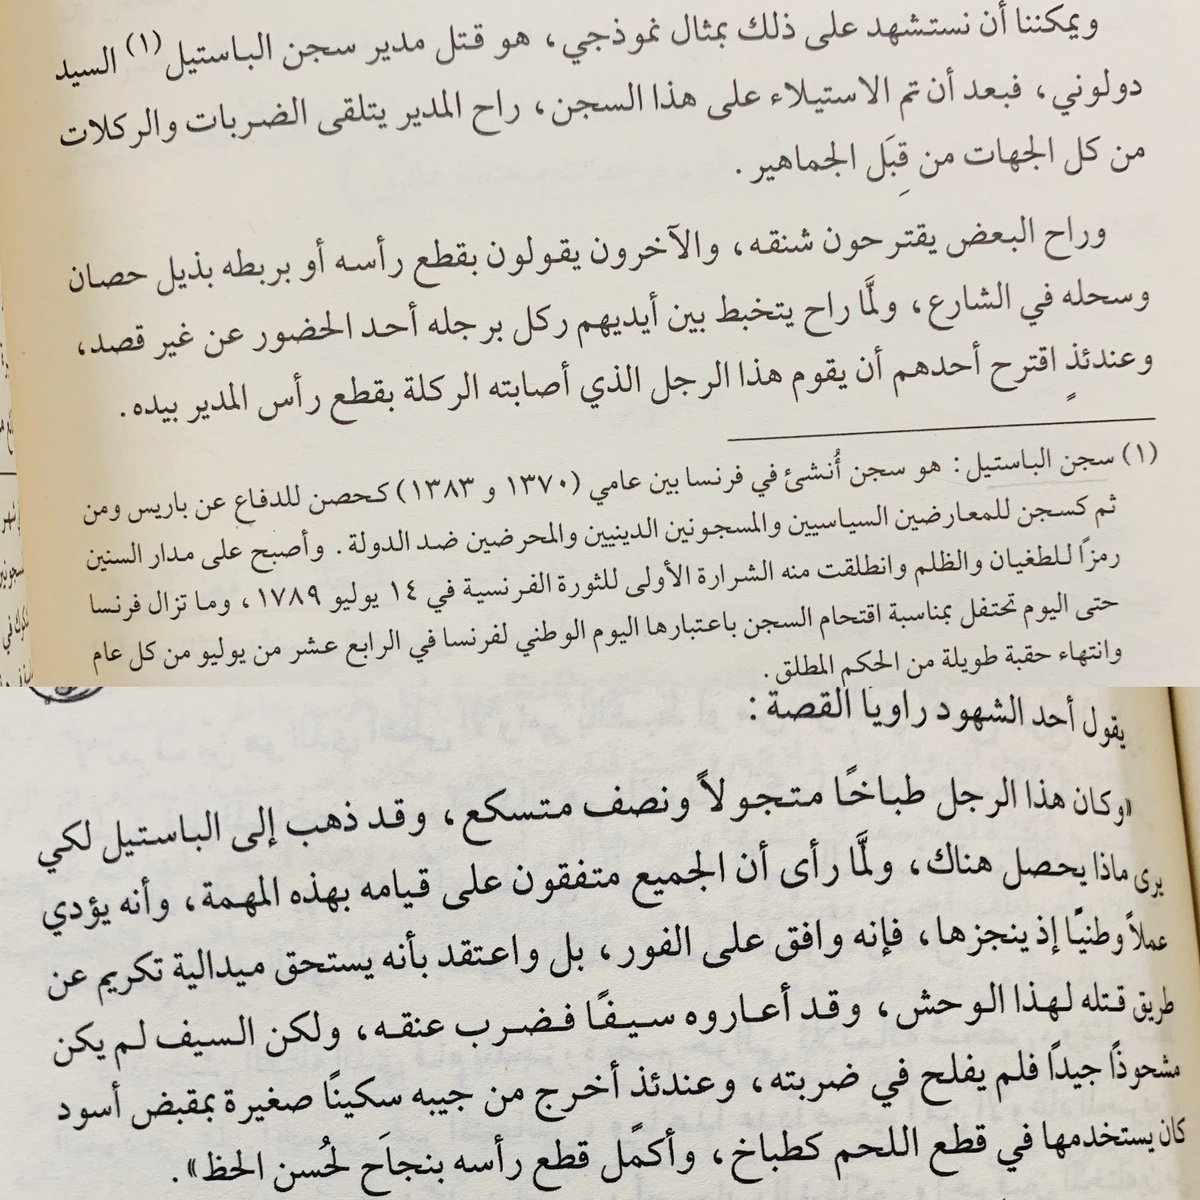 ويمكننا أن نستشهد على ذلك بمثال نموذجي، هو قتل مدير سجن الباستيل(١) السيد
دولوني، فبعد أن تم الاستيلاء على هذا السجن، راح المدير يتلقى الضربات والركلات
من كل الجهات من قِبَل الجماهير.
وراح البعض يقترحون شنقه، والآخرون يقولون بقطع رأسه أو بربطه بذيل حصان
وسحله في الشارع، ولمَّا راح يتخبط بين أيديهم ركل برجله أحد الحضور عن غير قصد،
وعندئذٍ اقترح أحدهم أن يقوم هذا الرجل الذي أصابته الركلة بقطع رأس المدير بيده.
(١) سجن الباستيل: هو سجن أُنشئ في فرنسا بين عامي (١٣٧٠ و ١٣٨٣) كحصن للدفاع عن باريس ومن
ثم كسجن للمعارضين السياسيين والمسجونين الدينيين والمحرضين ضد الدولة. وأصبح على مدار السنين
رمزًا للطغيان والظلم وانطلقت منه الشرارة الأولى للثورة الفرنسية في ١٤ يوليو ١٧٨٩، وما تزال فرنسا
حتى اليوم تحتفل بمناسبة اقتحام السجن باعتبارها اليوم الوطني لفرنسا في الرابع عشر من يوليو من كل عام
وانتهاء حقبة طويلة من الحكم المطلق.
يقول أحد الشهود راويا القصة:
«وكان هذا الرجل طباخًا متجولاً ونصف متسكع، وقد ذهب إلى الباستيل لكي
يرى ماذا يحصل هناك، ولمَّا رأى أن الجميع متفقون على قيامه بهذه المهمة، وأنه يؤدي
عملاً وطنيًا إذ ينجزها، فإنه وافق على الفور، بل واعتقد بأنه يستحق ميدالية تكريم عن
طريق قتله لهذا الوحش، وقد أعاروه سيفًا فضرب عنقه، ولكن السيف لم يكن
مشحوذًا جيدًا فلم يفلح في ضربته، وعندئذ أخرج من جيبه سكينًا صغيرة بمقبض أسود
كان يستخدمها في قطع اللحم كطباخ، وأكمل قطع رأسه بنجاح لحُسن الحظ».